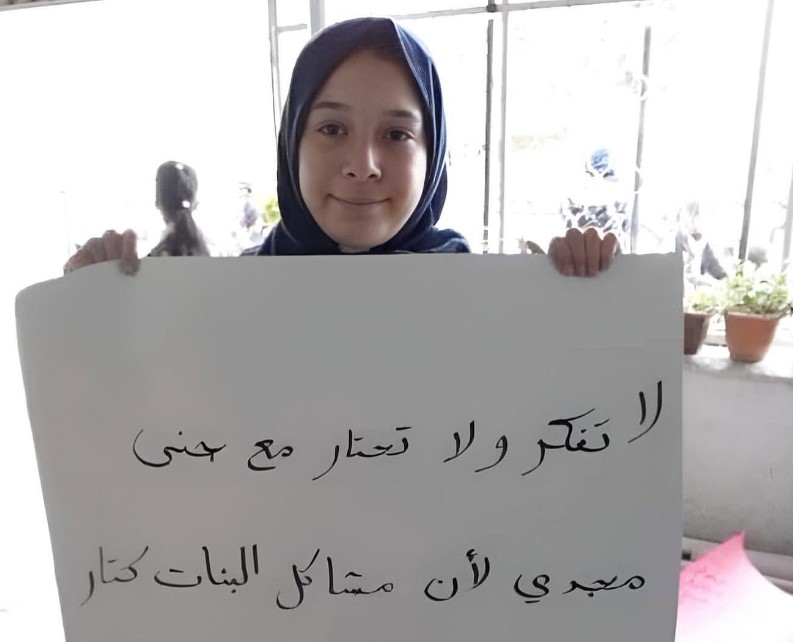 لا تفكر ولا تحتار مع حنى
مجدي لأن مشاكل البنات كتار